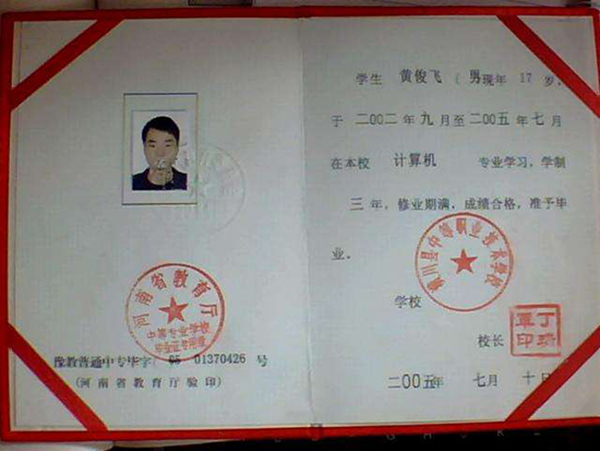 河南省教育厅
中等专业学校
毕业证专用章
豫教普通中专毕字( 05 01370426 号
(河南省教育厅验印)
学生 黄俊飞 ( 男现年 17 岁,
于 二〇〇二 年 九 月至 二〇〇五 年 七 月
在本校 计算机 专业学习,学制
三 年,修业期满,成绩合格,准予毕
业。
川县中等职业技术学校
学校
校长
二〇〇五年 七月 十日